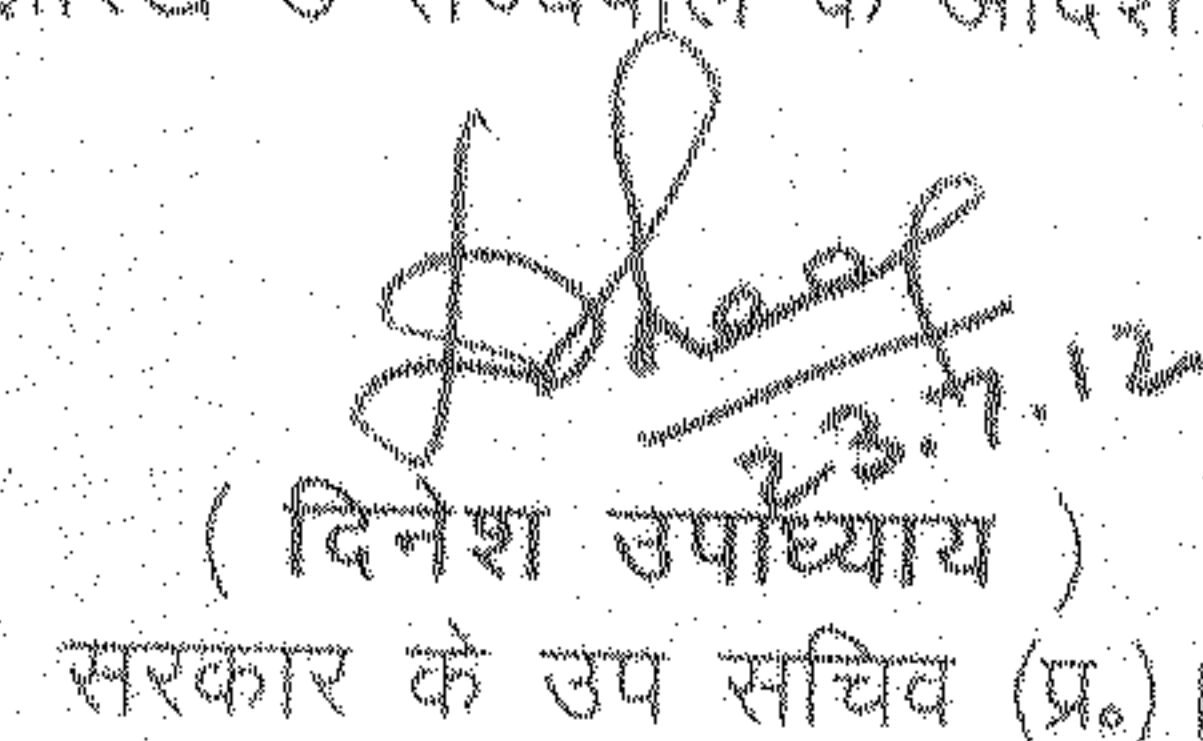 के आदेश
23.7.12
( दिनेश उपाध्याय )
सरकार के उप सचिव (प्र.)